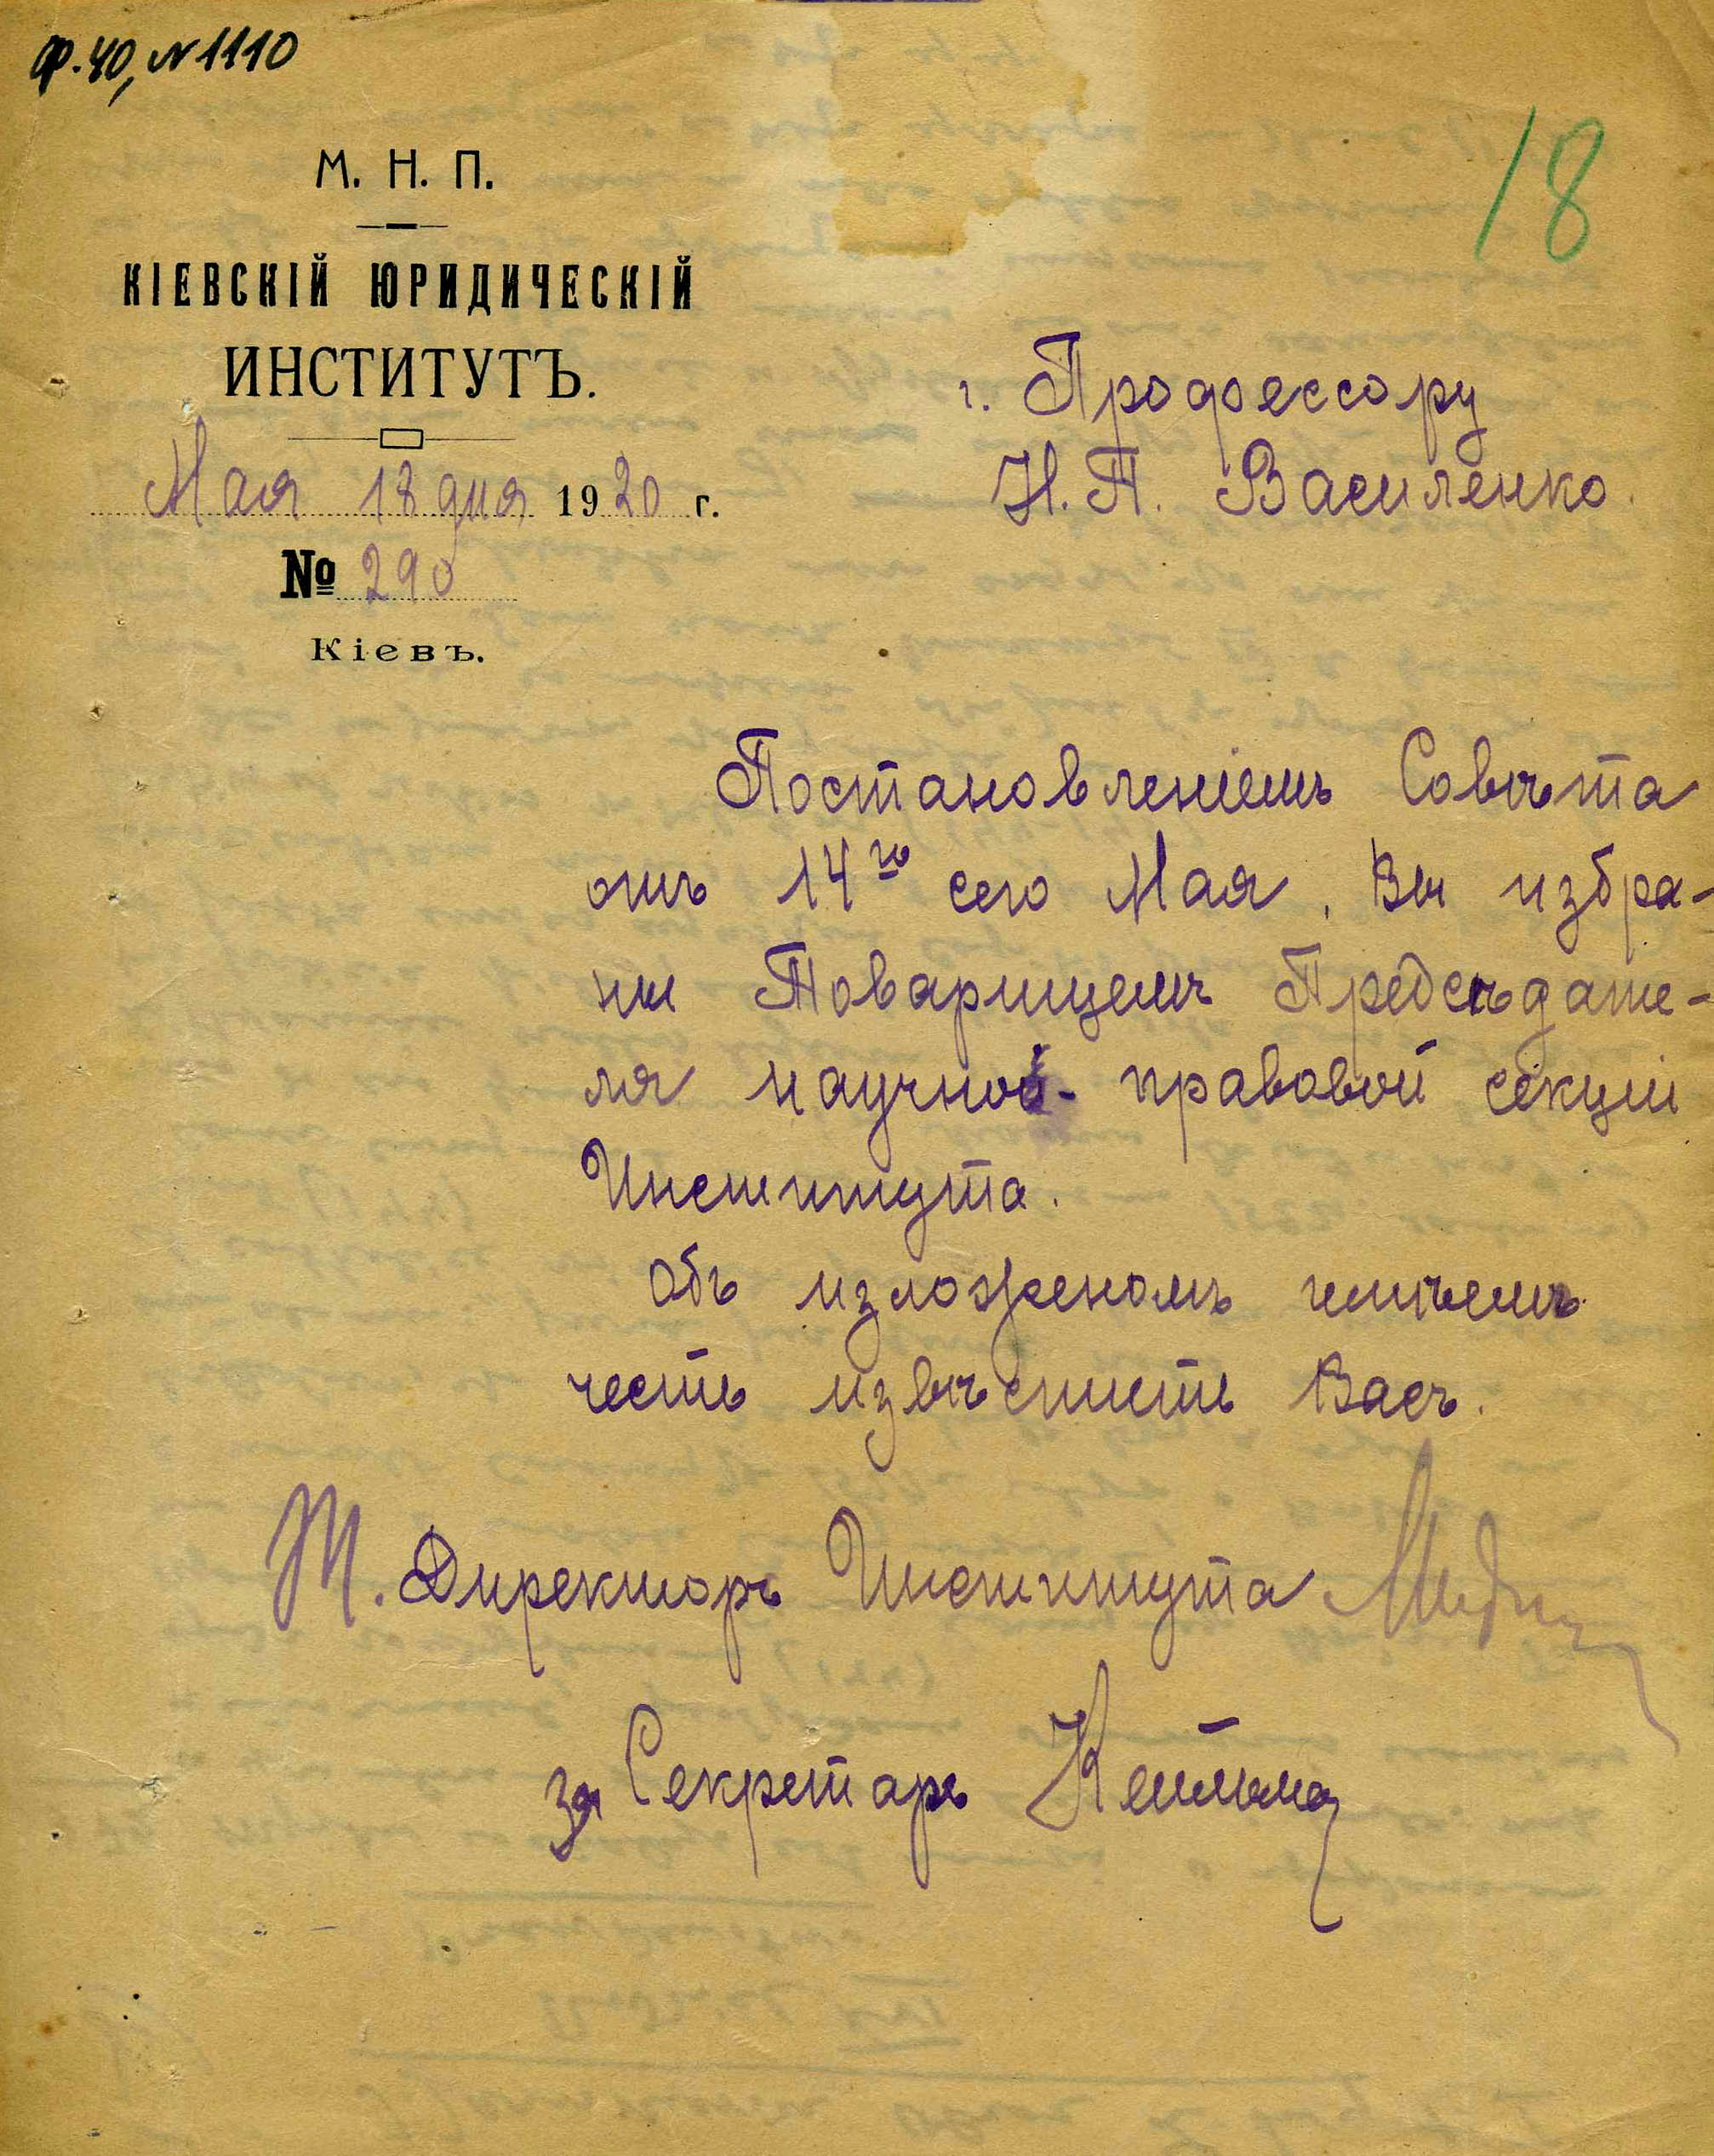 ф.40, №1110
18
М. Н. П.
КІЕВСКІЙ ЮРИДИЧЕСКІЙ
ИНСТИТУТЪ.
Мая 18 дня 1920 г.
№ 290
Кіевъ.
г. Профессору
Н.П. Василенко.
Постановленіемъ Совѣта
отъ 14го сего Мая, Вы избра-
ны Товарищемъ Предсѣдате-
ля научно-правовой секціи
Института.
Объ изложеномъ имѣемъ
честь извѣстить Васъ.
Т. Директоръ Института
за Секретарь